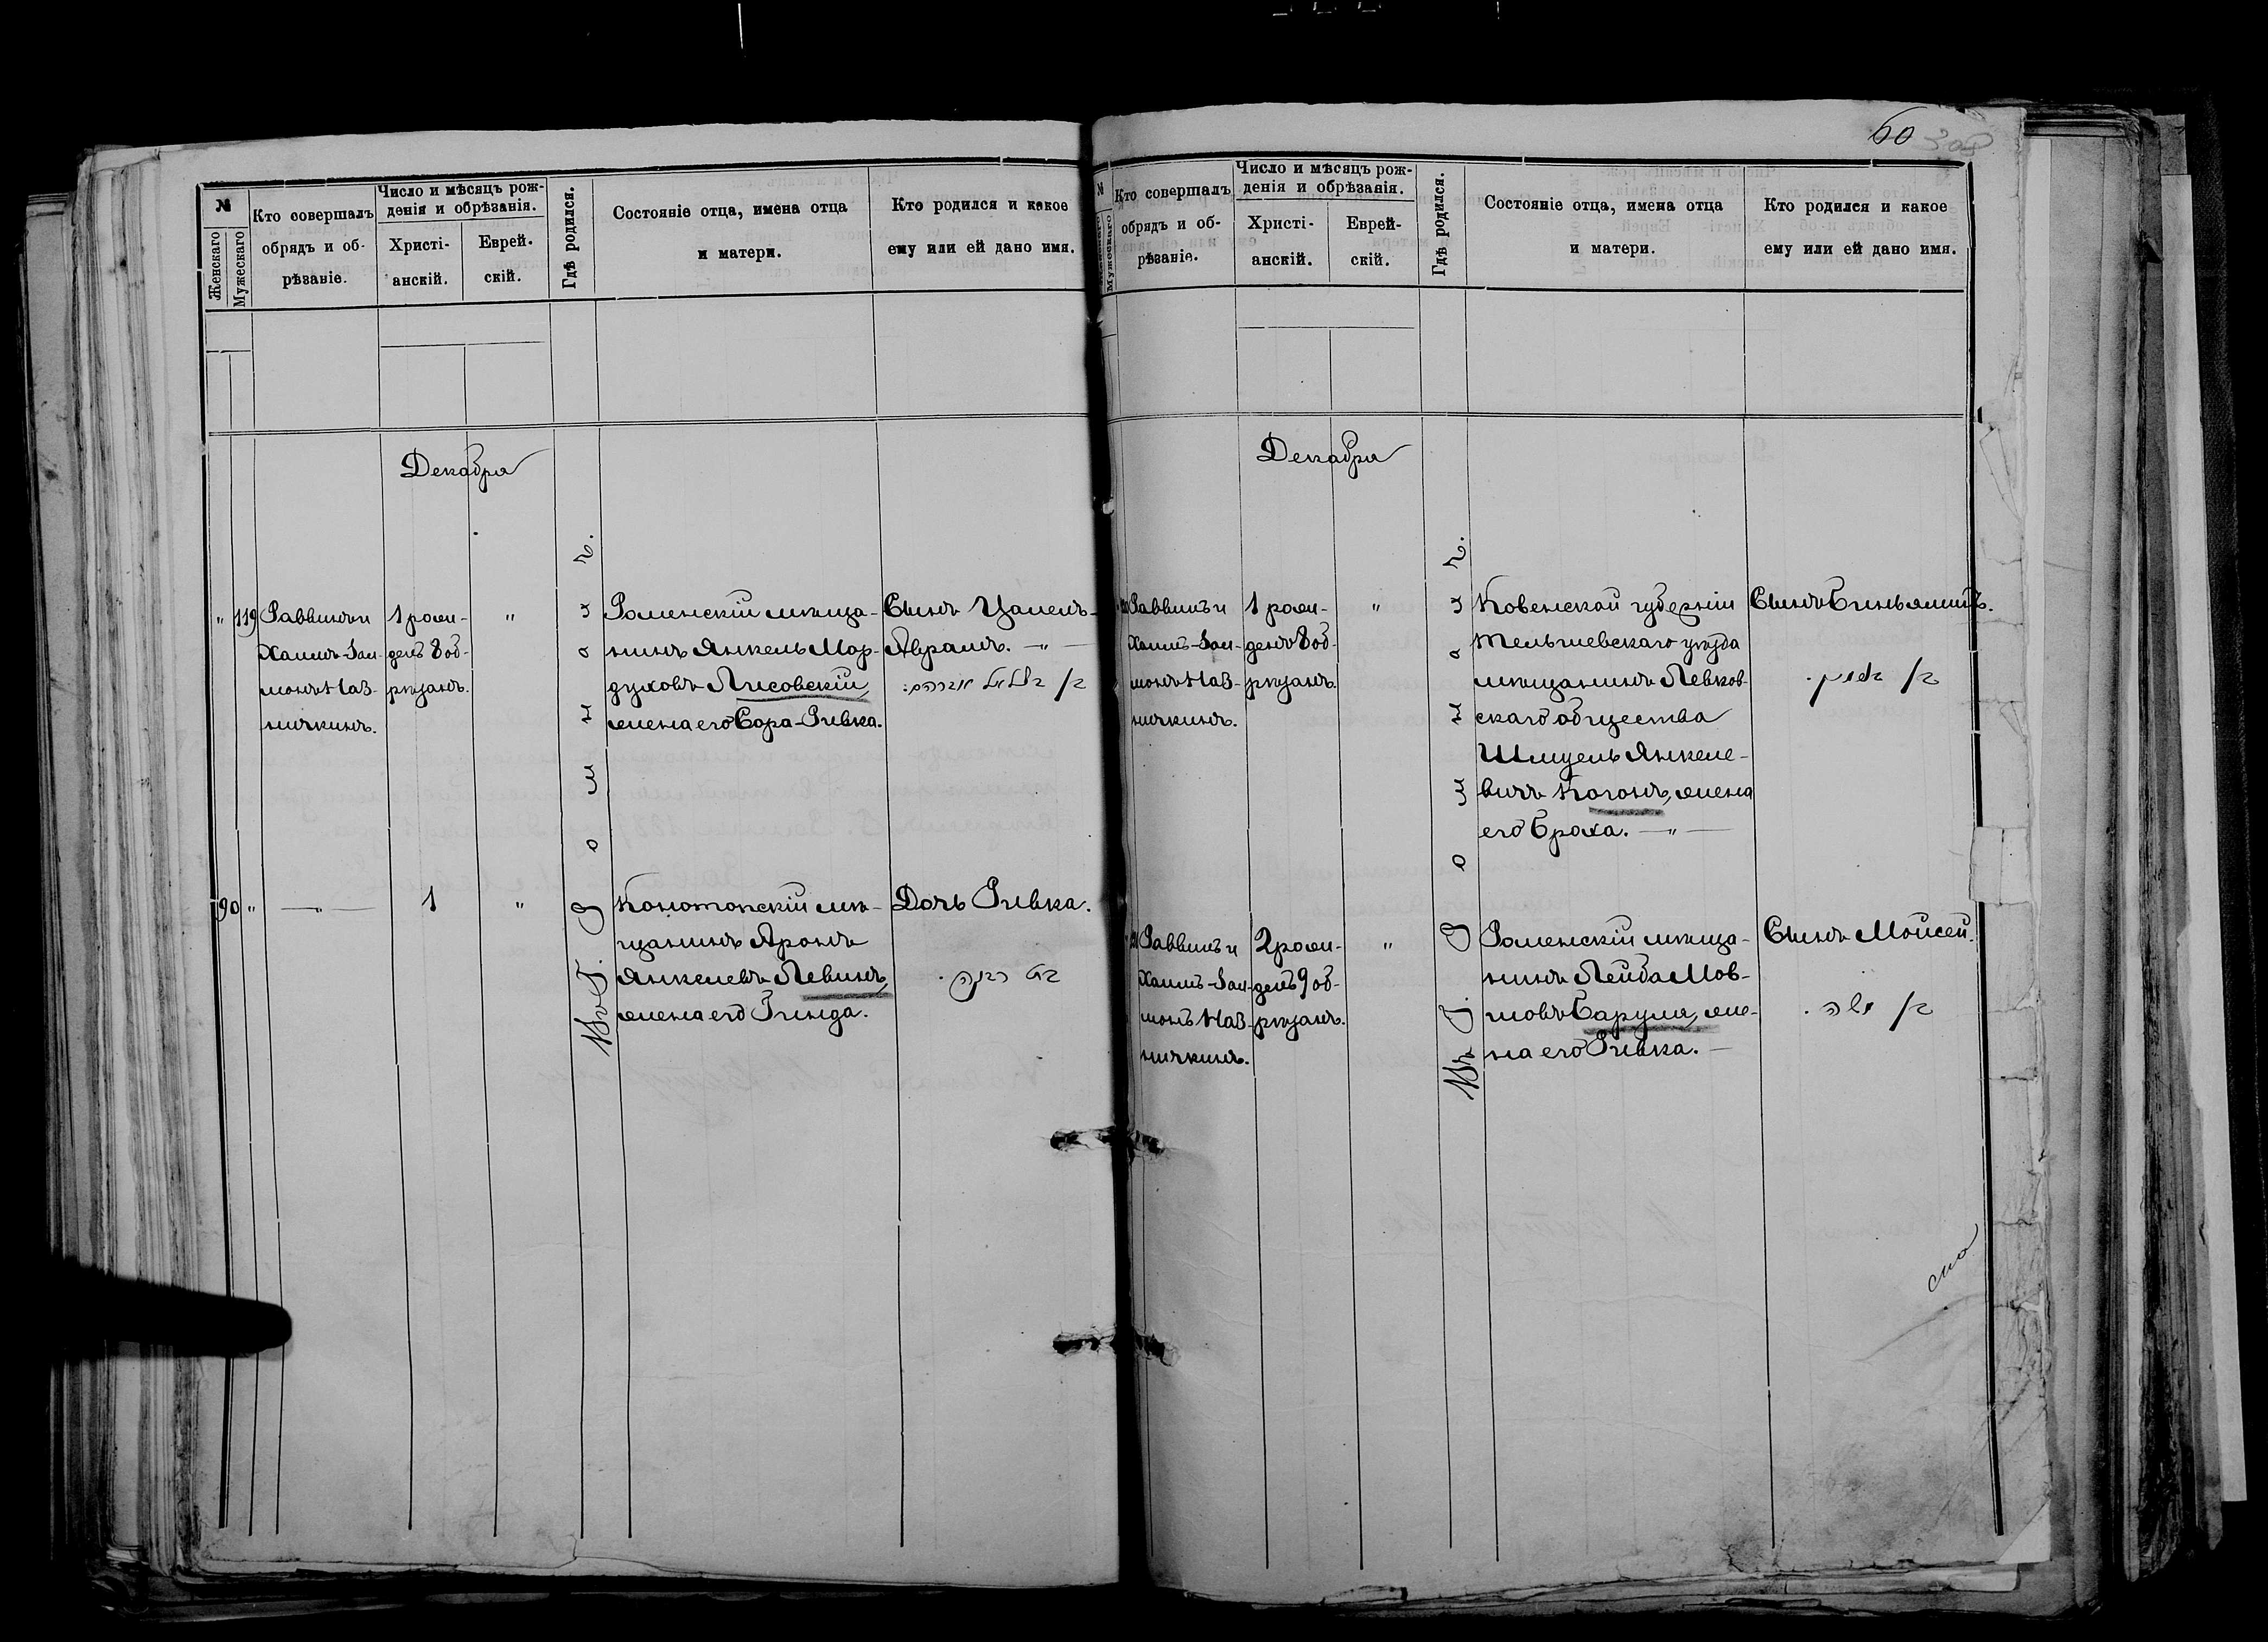 60
№
Женскаго
Мужескаго
Кто совершалъ
обрядъ и об-
рѣзаніе.
Число и мѣсяцъ рож-
денія и обрѣзанія.
Христі-
анскій.
Еврей-
скій.
Гдѣ родился.
Состояніе отца, имена отца
и матери.
Кто родился и какое
ему или ей дано имя.
Декабря
" 119
Раввинъ и
Хаимъ-Зал-
монъ Наз-
нячкинъ.
1 рожд-
денъ 8 об-
рѣзанъ.
"
Въ г. Ромнахъ.
Роменскій мѣща-
нинъ Янкель Мор-
духовъ Лисовскій,
жена его Сора-Ривка.
Сынъ Цалель-
Аврамъ. —"—
בן בצלאל אברהם.
90 "
—"—
1
"
Конотопскій мѣ-
щанинъ Аронъ
Янкелевъ Левинъ,
жена его Гинда.
Дочь Ривка.
בת רבקה.
№
Мужескаго
Кто совершалъ
обрядъ и об-
рѣзаніе.
Число и мѣсяцъ рож-
денія и обрѣзанія.
Христі-
анскій.
Еврей-
скій.
Гдѣ родился.
Состояніе отца, имена отца
и матери.
Кто родился и какое
ему или ей дано имя.
Декабря
Раввинъ и
Хаимъ-Зал-
монъ Наз-
нячкинъ.
1 рожд-
денъ 8 об-
рѣзанъ.
"
Ковенской губерніи
Тельшевскаго уѣзда
мѣщанинъ Левков-
скаго общества
Шмуель Янкеле-
вичъ Коганъ, жена
его Броха. —"—
Сынъ Биньяминъ.
בן
Раввинъ и
Хаимъ-Зал-
монъ Наз-
нячкинъ.
2 рожд-
денъ 9 об-
рѣзанъ.
"
Роменскій мѣща-
нинъ Лейба Мов-
шовъ Сарумя, же-
на его Ривка. —
Сынъ Мойсей.
בן משה.